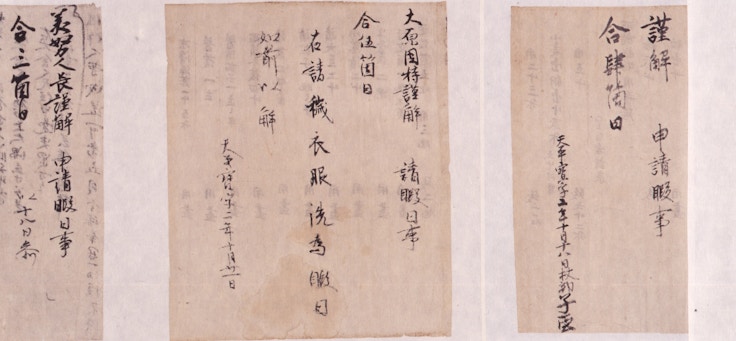 謹解　申請暇事
合肆箇日
天平寳字五年十月十八日
大原國持謹解　請暇日事
合伍箇日
右請穢衣服洗為暇日
如前以解
天平寳字二年十月廿一日
美努人長謹解　申請暇日事
合三箇日
十八日